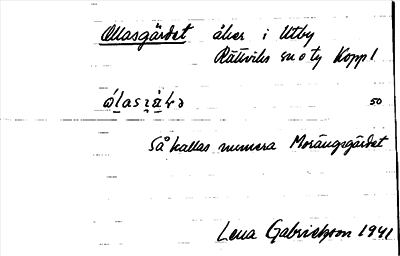 Ollasgärdet åker i Utby
Rättviks sn o ty Koppl
50
Så kallas numera Morängsgärdet
Lena Gabrielsson 1941